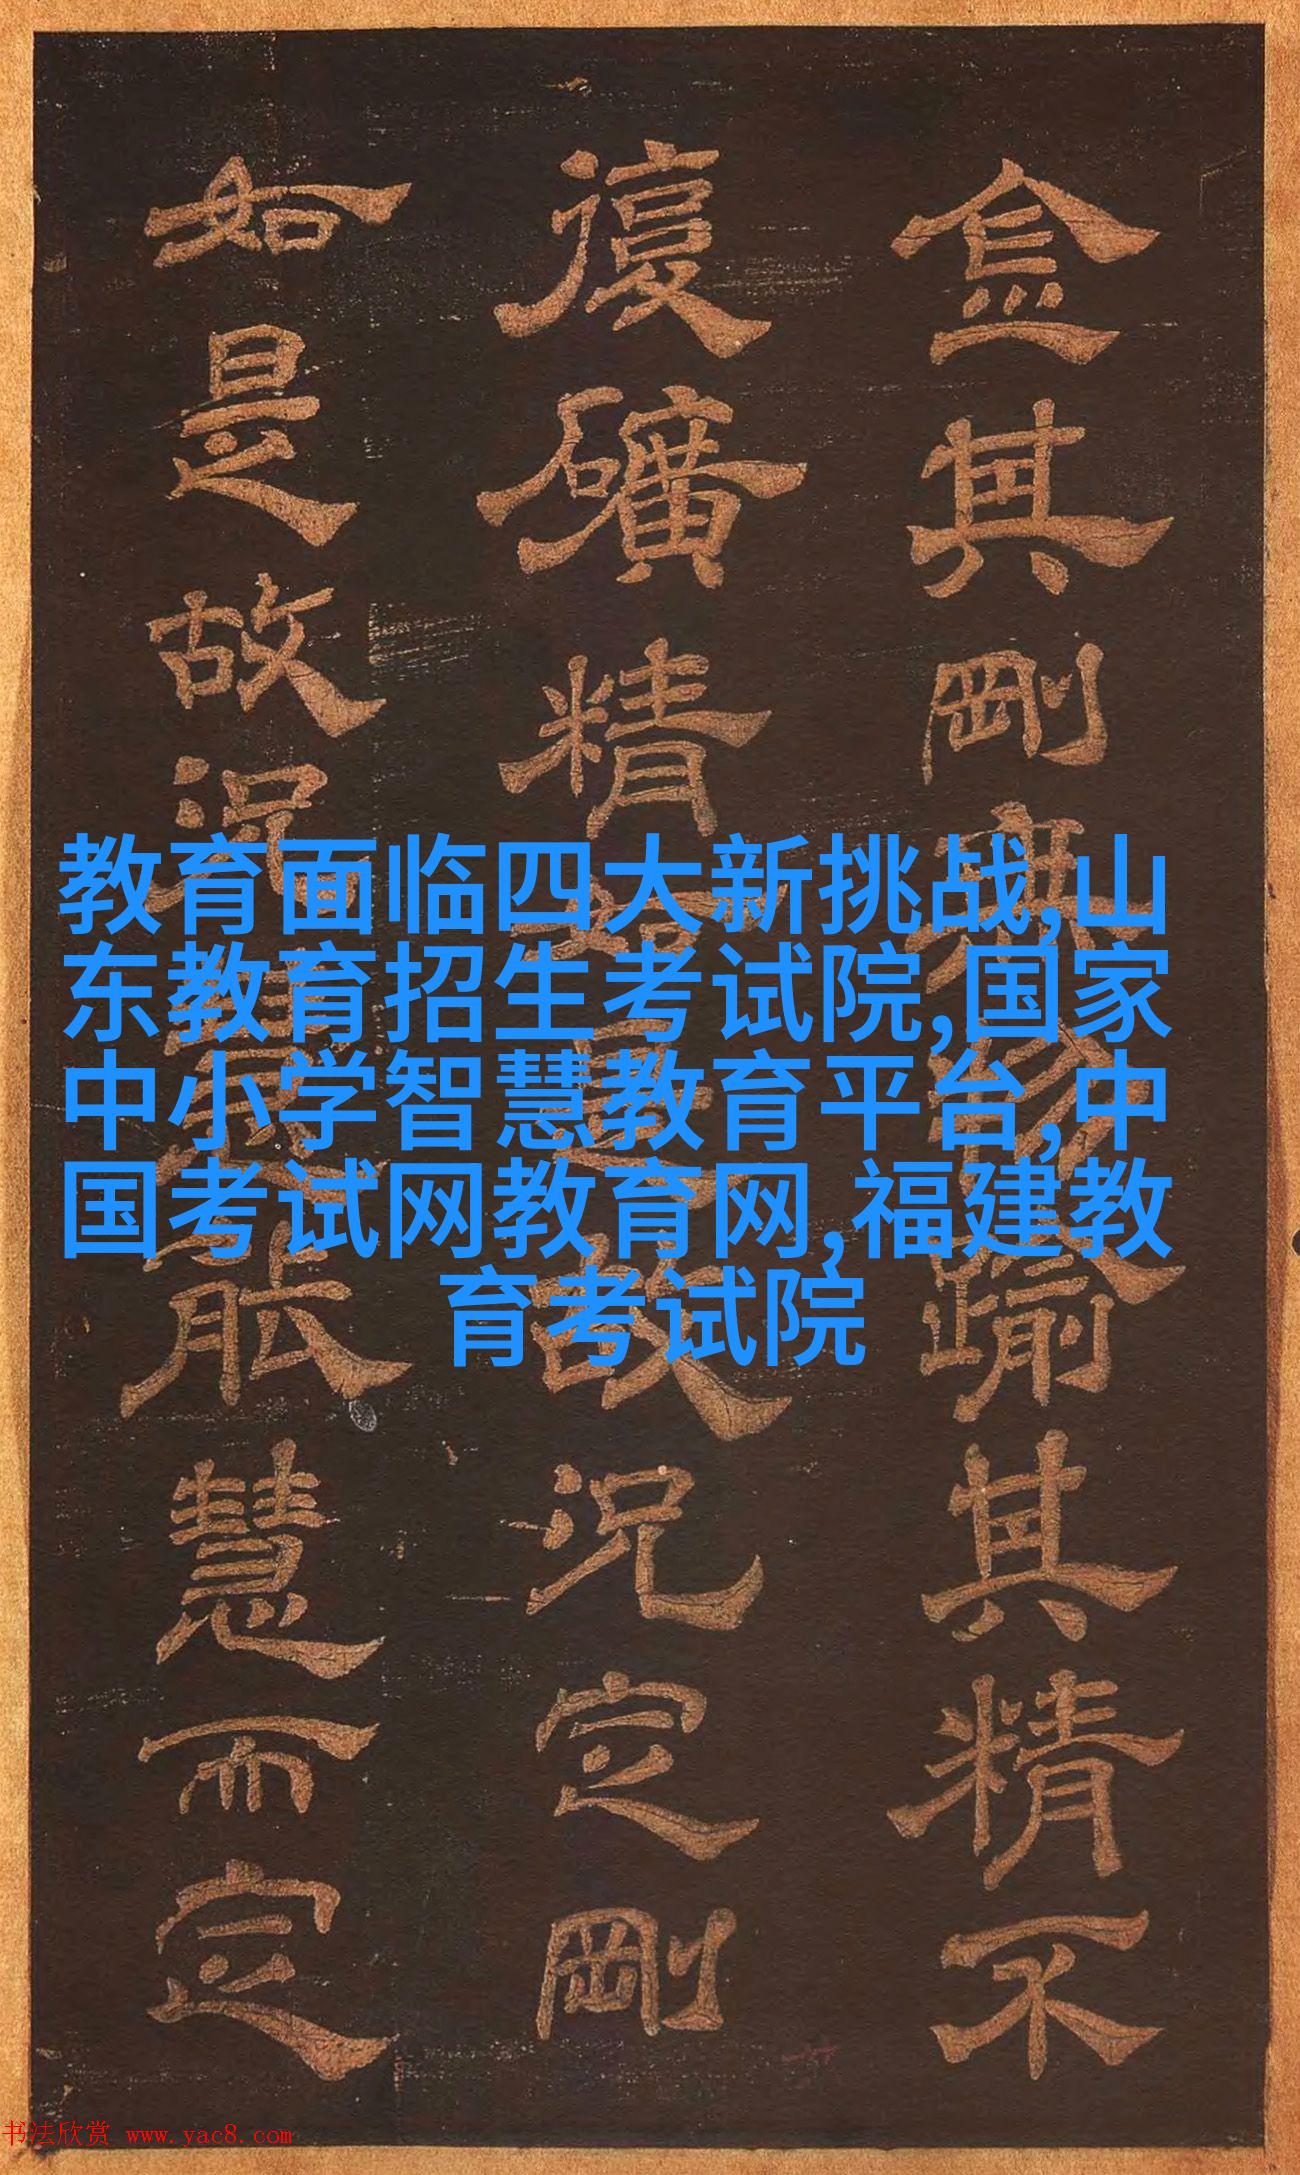 金其剛踰其精不
復礦精故況定剛
如是故況能慧而定
教育面临四大新挑战,山
东教育招生考试院,国家
中小学智慧教育平台,中
国考试网教育网,福建教
育考试院
书法欣赏 www.yac8.com